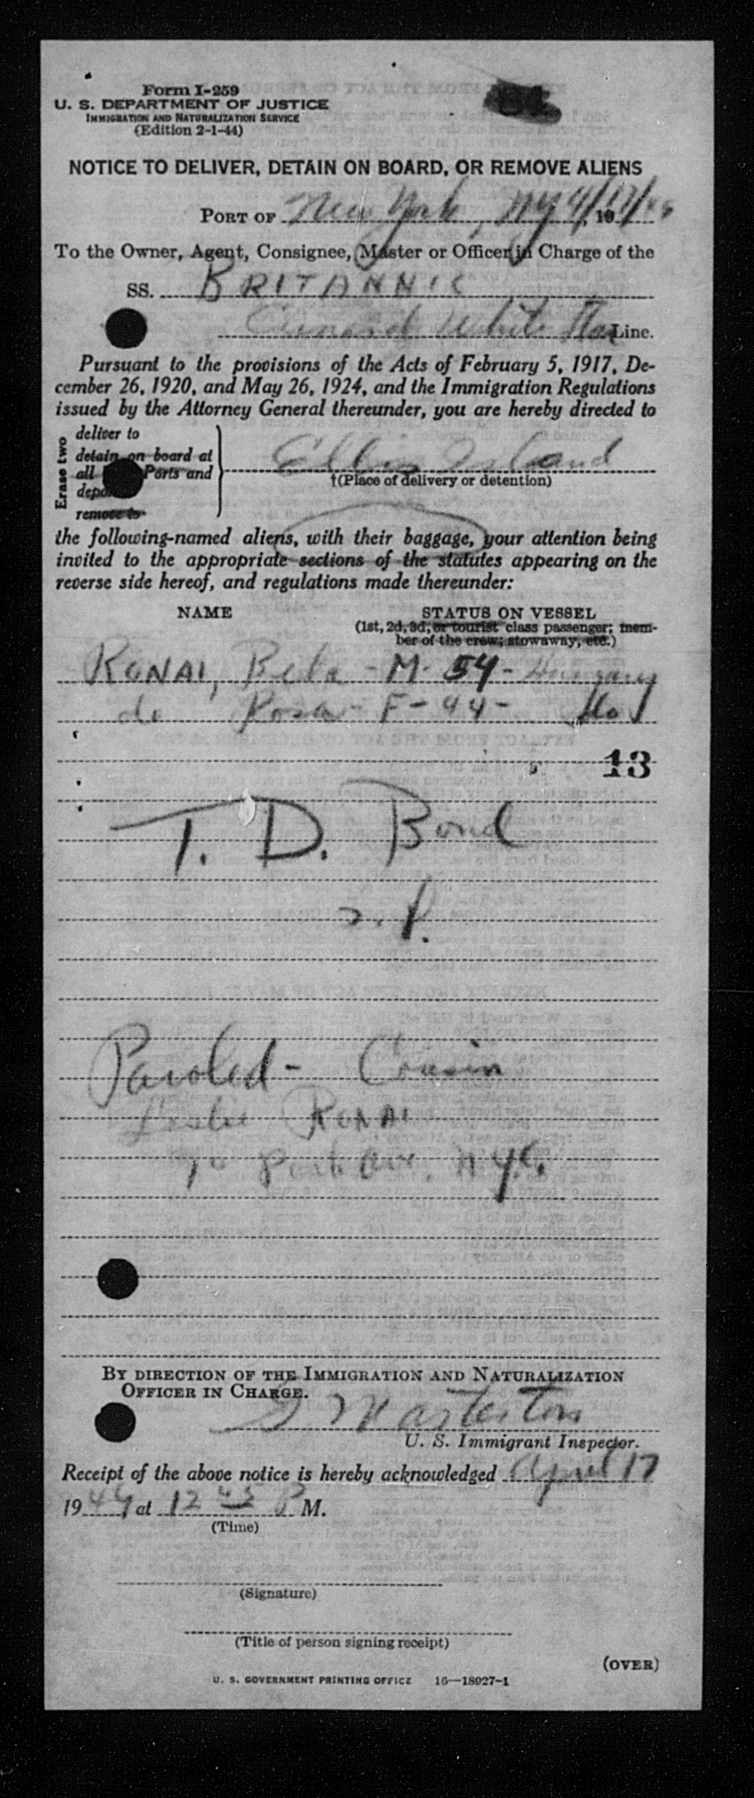 Form I-259
U. S. DEPARTMENT OF JUSTICE
IMMIGRATION AND NATURALIZATION SERVICE
(Edition 2-1-44)
NOTICE TO DELIVER, DETAIN ON BOARD, OR REMOVE ALIENS
PORT OF New York, NY 4/17/ 19
To the Owner, Agent, Consignee, Master or Officer in Charge of the
SS. BRITANNIC
Cunard White Star Line.
Pursuant to the provisions of the Acts of February 5, 1917, De-
cember 26, 1920, and May 26, 1924, and the Immigration Regulations
issued by the Attorney General thereunder, you are hereby directed to
Erase two
deliver to
detain on board at
all Ports and
remove to
Ellis Island
†(Place of delivery or detention)
the following-named aliens, with their baggage, your attention being
invited to the appropriate sections of the statutes appearing on the
reverse side hereof, and regulations made thereunder:
NAME STATUS ON VESSEL
(1st, 2d, 3d, or tourist class passenger; mem-
ber of the crew; stowaway, etc.)
RONAI, Bela - M - 54 - Hungary
do Rosa - F - 44 - do
13
T. D. Bond
Paroled - Cousin
Leslie RONAI
Park Ave. N.Y.C.
BY DIRECTION OF THE IMMIGRATION AND NATURALIZATION
OFFICER IN CHARGE.
U. S. Immigrant Inspector.
Receipt of the above notice is hereby acknowledged April 17
19 49 at 12 45 P M.
(Time)
(Signature)
(Title of person signing receipt)
(OVER)
U. S. GOVERNMENT PRINTING OFFICE 16—18927-1